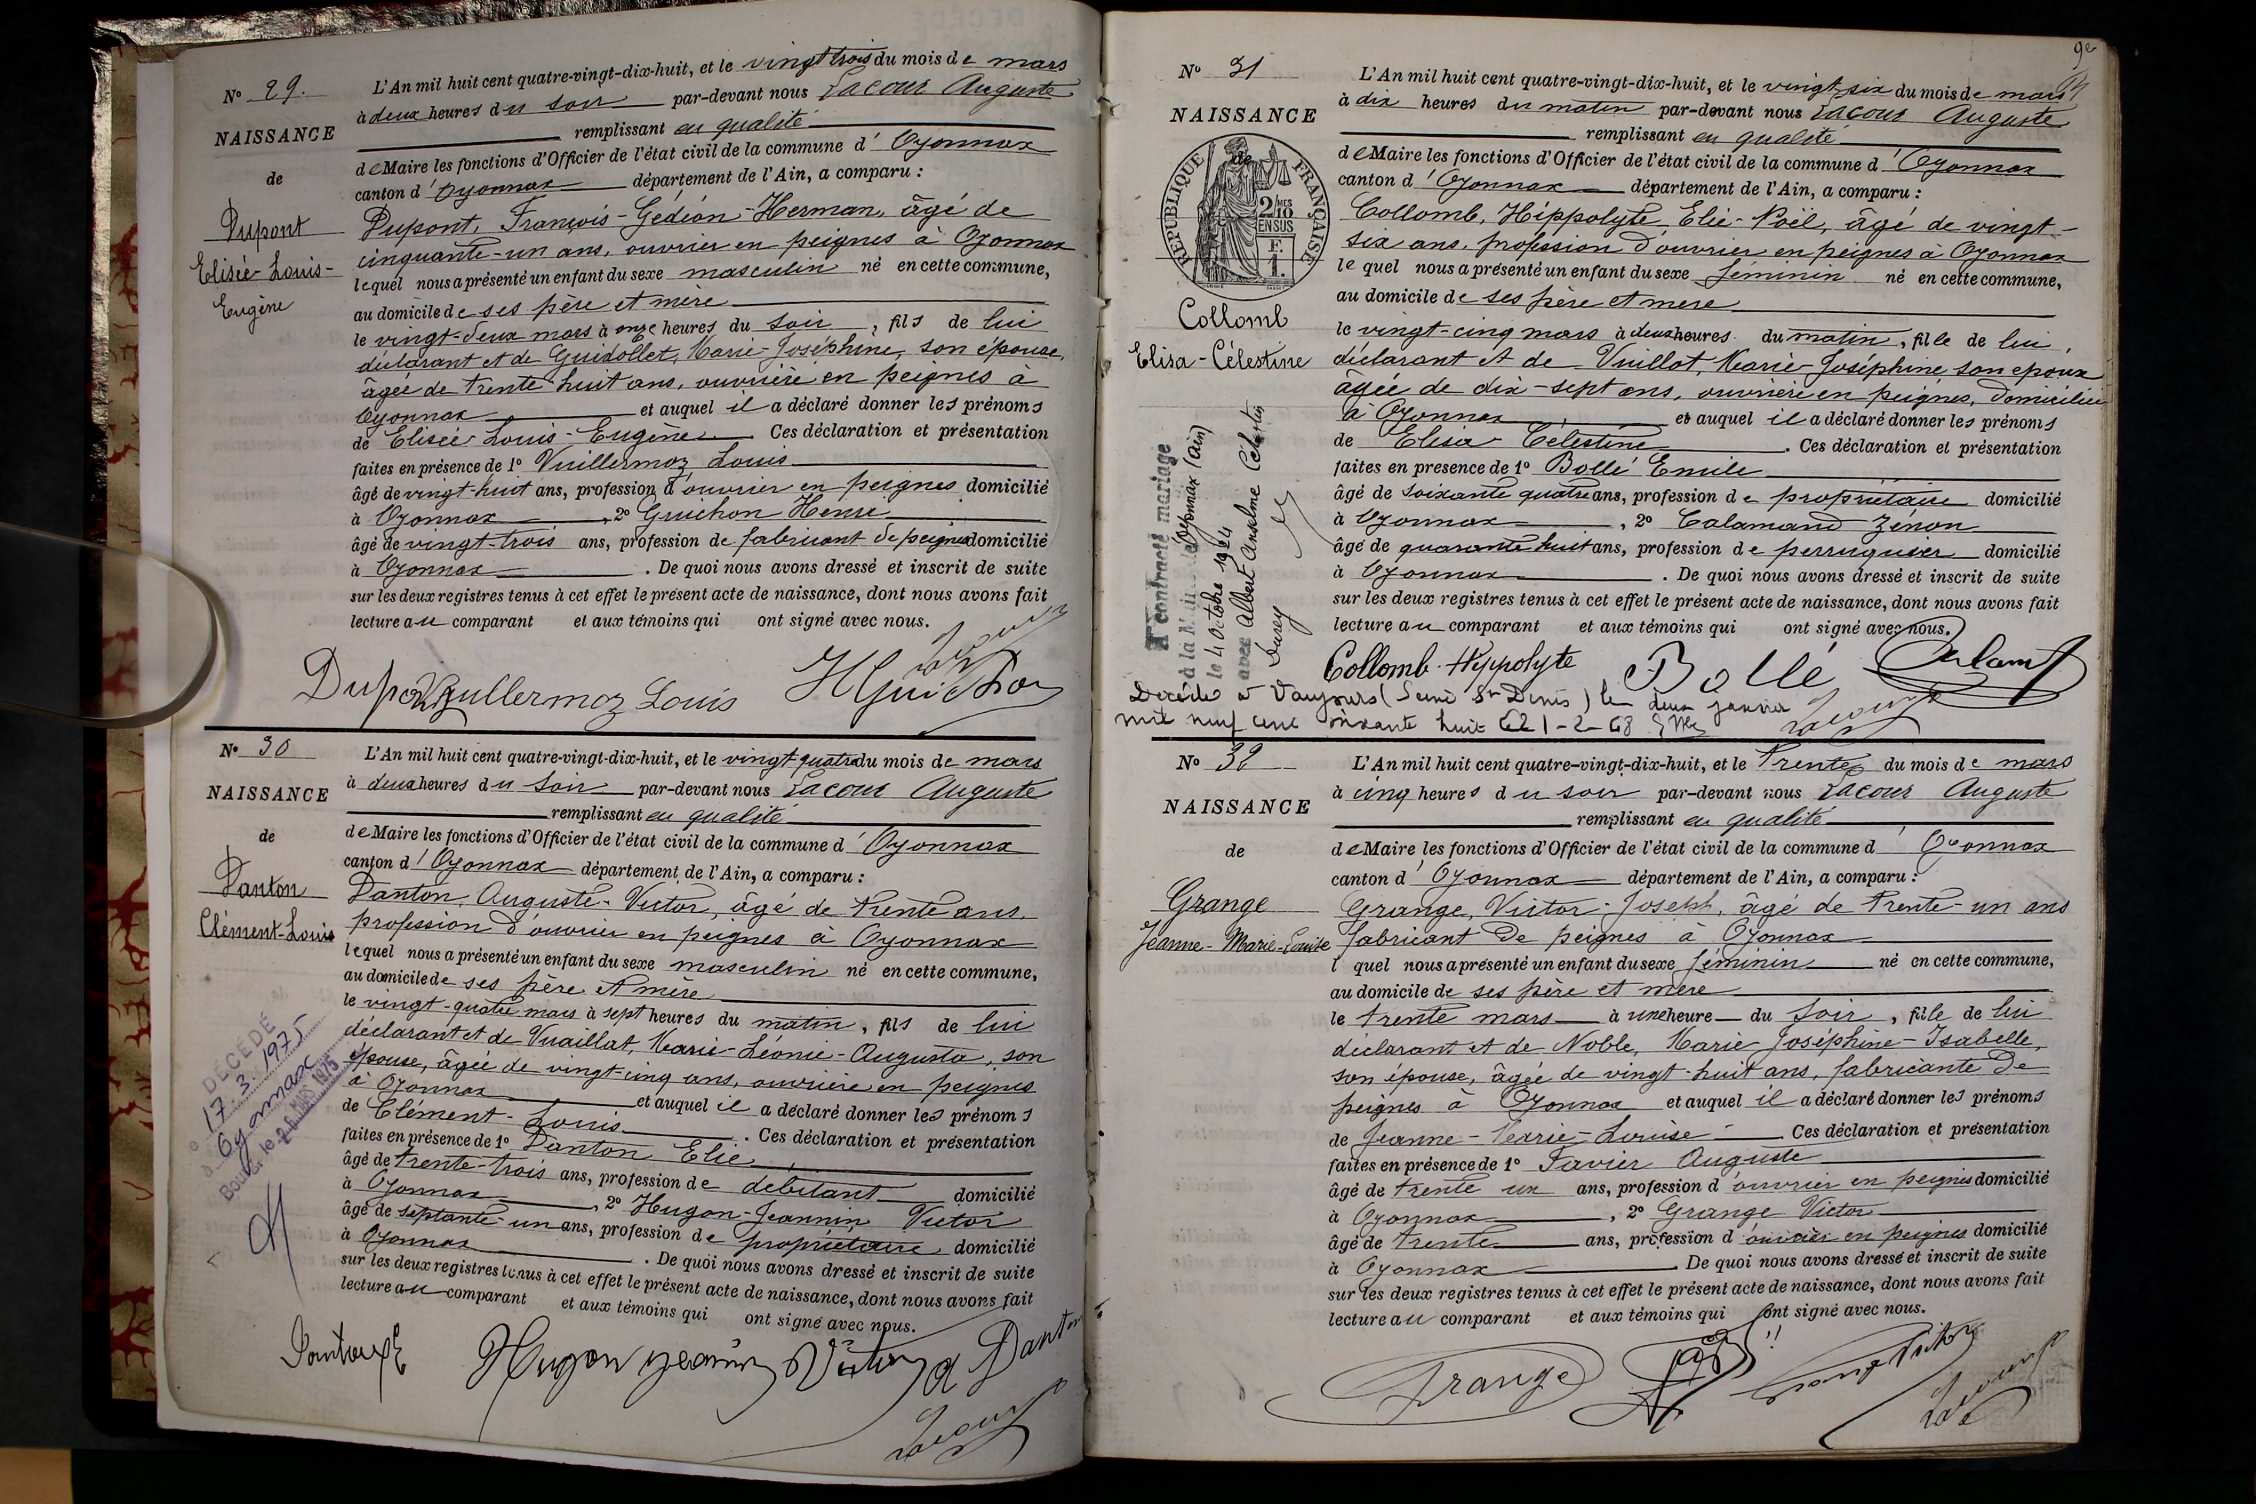 N° 29.
NAISSANCE
de
Dupont
Elisée-Louis-
Eugène
L'An mil huit cent quatre-vingt-dix-huit, et le vingt trois du mois de mars
à deux heures du soir par-devant nous Lacour Auguste
remplissant en qualité
de Maire les fonctions d'Officier de l'état civil de la commune d'Oyonnax
canton d'Oyonnax département de l'Ain, a comparu :
Dupont, François-Gédéon-Herman, âgé de
cinquante-un ans, ouvrier en peignes à Oyonnax
lequel nous a présenté un enfant du sexe masculin né en cette commune,
au domicile de ses père et mère
le vingt-deux mars à onze heures du soir, fils de lui
déclarant et de Guidollet, Marie-Joséphine, son épouse,
âgée de trente huit ans, ouvrière en peignes à
Oyonnax et auquel il a déclaré donner les prénoms
de Elisée Louis-Eugène Ces déclaration et présentation
faites en présence de 1° Vuillermoz Louis
âgé de vingt-huit ans, profession d'ouvrier en peignes domicilié
à Oyonnax, 2° Guichon Henri
âgé de vingt-trois ans, profession de fabricant de peignes domicilié
à Oyonnax. De quoi nous avons dressé et inscrit de suite
sur les deux registres tenus à cet effet le présent acte de naissance, dont nous avons fait
lecture au comparant et aux témoins qui ont signé avec nous.
Dupont Vuillermoz Louis H Guichon
Lacour
N° 30
NAISSANCE
de
Danton
Clément-Louis
DÉCÉDÉ
17.3.1975
Oyonnax
MARS 1975
L'An mil huit cent quatre-vingt-dix-huit, et le vingt quatre du mois de mars
à deux heures du soir par-devant nous Lacour Auguste
remplissant en qualité
de Maire les fonctions d'Officier de l'état civil de la commune d'Oyonnax
canton d'Oyonnax département de l'Ain, a comparu :
Danton, Auguste-Victor, âgé de trente ans,
profession d'ouvrier en peignes à Oyonnax
lequel nous a présenté un enfant du sexe masculin né en cette commune,
au domicile de ses père et mère
le vingt-quatre mars à sept heures du matin, fils de lui
déclarant et de Vuaillat, Marie-Léonie-Augusta, son
épouse, âgée de vingt-cinq ans, ouvrière en peignes
à Oyonnax et auquel il a déclaré donner les prénoms
de Clément-Louis. Ces déclaration et présentation
faites en présence de 1° Danton Elie
âgé de trente-trois ans, profession de débitant domicilié
à Oyonnax, 2° Hugon-Jeannin Victor
âgé de septante-un ans, profession de propriétaire domicilié
à Oyonnax. De quoi nous avons dressé et inscrit de suite
sur les deux registres tenus à cet effet le présent acte de naissance, dont nous avons fait
lecture au comparant et aux témoins qui ont signé avec nous.
Danton E Hugon Jeannin Victor A Danton
Lacour
N° 31
NAISSANCE
de
RÉPUBLIQUE FRANÇAISE
2/10 MES
EN SUS
F.
1.
Collomb
Elisa-Célestine
A contracté mariage
à la Mairie de Oyonnax (Ain)
le 4 Octobre 1924
avec Albert Anselme Célestin
L'An mil huit cent quatre-vingt-dix-huit, et le vingt six du mois de mars
à dix heures du matin par-devant nous Lacour Auguste
remplissant en qualité
de Maire les fonctions d'Officier de l'état civil de la commune d'Oyonnax
canton d'Oyonnax département de l'Ain, a comparu :
Collomb, Hippolyte, Elie-Noël, âgé de vingt-
six ans, profession d'ouvrier en peignes à Oyonnax
le quel nous a présenté un enfant du sexe féminin né en cette commune,
au domicile de ses père et mère
le vingt-cinq mars à deux heures du matin, fille de lui,
déclarant et de Vuillot, Marie-Joséphine son épouse
âgée de dix-sept ans, ouvrière en peignes, domiciliée
à Oyonnax et auquel il a déclaré donner les prénoms
de Elisa-Célestine. Ces déclaration et présentation
faites en présence de 1° Bollé Emile
âgé de soixante quatre ans, profession de propriétaire domicilié
à Oyonnax, 2° Calamand Zénon
âgé de quarante huit ans, profession de perruquier domicilié
à Oyonnax. De quoi nous avons dressé et inscrit de suite
sur les deux registres tenus à cet effet le présent acte de naissance, dont nous avons fait
lecture au comparant et aux témoins qui ont signé avec nous.
Collomb Hippolyte Bollé Calamand
Décédée à Vaujours (Seine St Denis) le deux janvier
mil neuf cent soixante huit Le 1-2-68
Lacour
N° 32
NAISSANCE
de
Grange
Jeanne-Marie-Louise
L'An mil huit cent quatre-vingt-dix-huit, et le Trente du mois de mars
à cinq heures du soir par-devant nous Lacour Auguste
remplissant en qualité
de Maire les fonctions d'Officier de l'état civil de la commune d'Oyonnax
canton d'Oyonnax département de l'Ain, a comparu :
Grange, Victor-Joseph, âgé de trente-un ans
fabricant de peignes à Oyonnax
l quel nous a présenté un enfant du sexe féminin né en cette commune,
au domicile de ses père et mère
le trente mars à une heure du soir, fille de lui
déclarant et de Noble, Marie Joséphine-Isabelle,
son épouse, âgée de vingt-huit ans, fabricante de
peignes à Oyonnax et auquel il a déclaré donner les prénoms
de Jeanne-Marie-Louise Ces déclaration et présentation
faites en présence de 1° Favier Auguste
âgé de trente un ans, profession d'ouvrier en peignes domicilié
à Oyonnax, 2° Grange Victor
âgé de trente ans, profession d'ouvrier en peignes domicilié
à Oyonnax. De quoi nous avons dressé et inscrit de suite
sur les deux registres tenus à cet effet le présent acte de naissance, dont nous avons fait
lecture au comparant et aux témoins qui ont signé avec nous.
Grange Grange Victor
Lacour